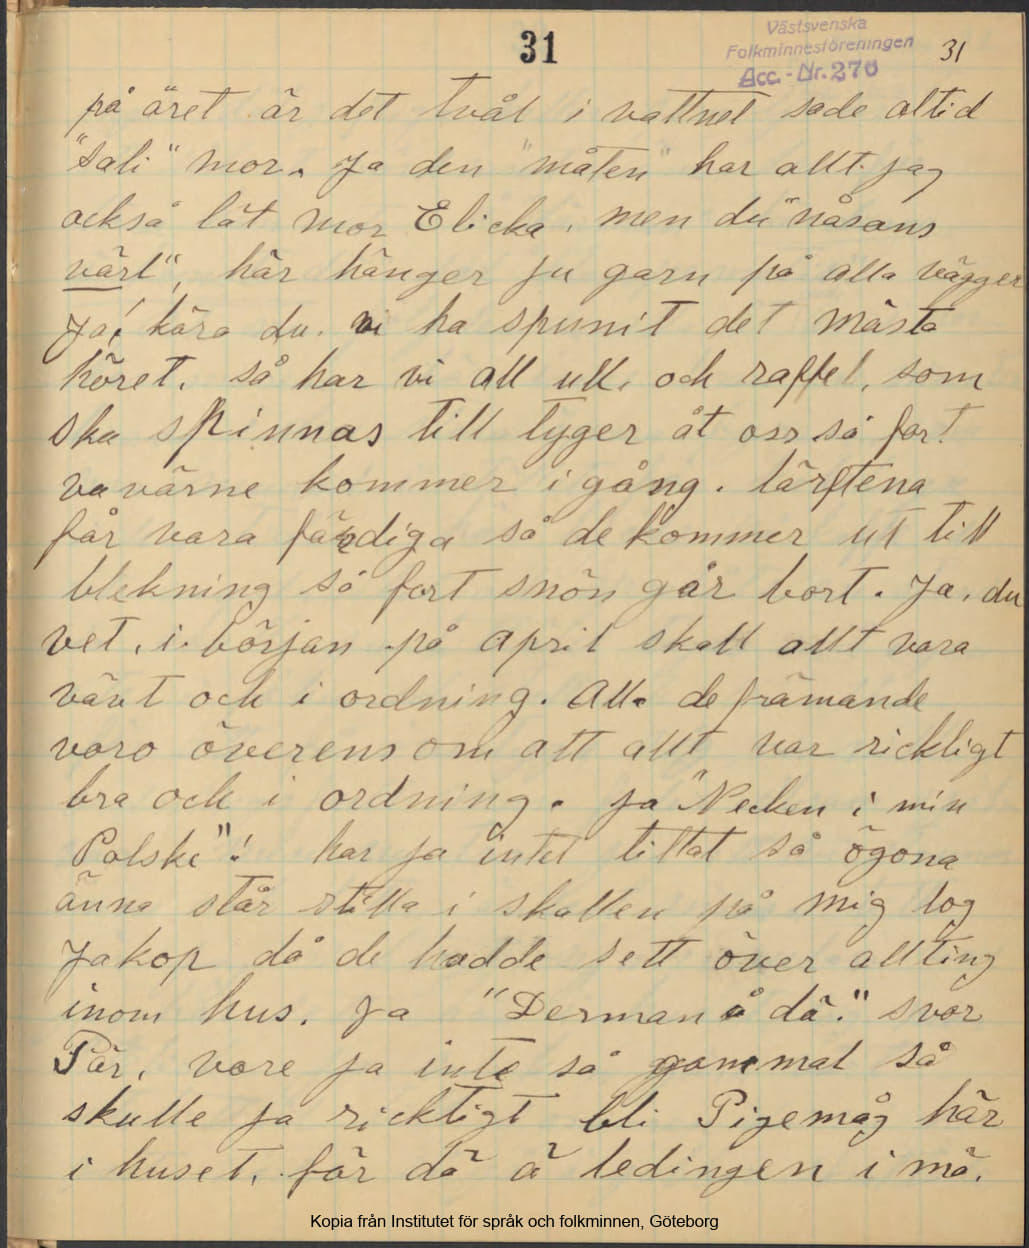 31
Västsvenska
Folkminnesföreningen
Acc.-Nr. 270
31
på året är det tvål i vattnet sade altid
"sali" mor. Ja den "måten" har allt jag
också låt mor Elicka, men du "nåsans
värl", här hänger ju garn på alla vägger
Ja! kära du. vi ha spunit det mästa
höret. så har vi all ull, och raffel, som
ska spinnas till tyger åt oss så fort
vavärne kommer i gång. lärftena
får vara färdiga så de kommer ut till
blekning så fort snön går bort. Ja, du
vet, i början på april skall allt vara
vävt och i ordning. Alla de främande
voro överens om att allt var rickligt
bra och i ordning. ja "Necken i min
Polske"! har ja intet tittat så ögona
änna står stilla i skallen på mig log
Jakop då de hadde sett över allting
inom hus. Ja "Derman å dä." svor
Pär, vore ja inte så gammal så
skulle ja ricktigt bli Pigemåg här
i huset, för dä ä ledingen i mä.
Kopia från Institutet för språk och folkminnen, Göteborg